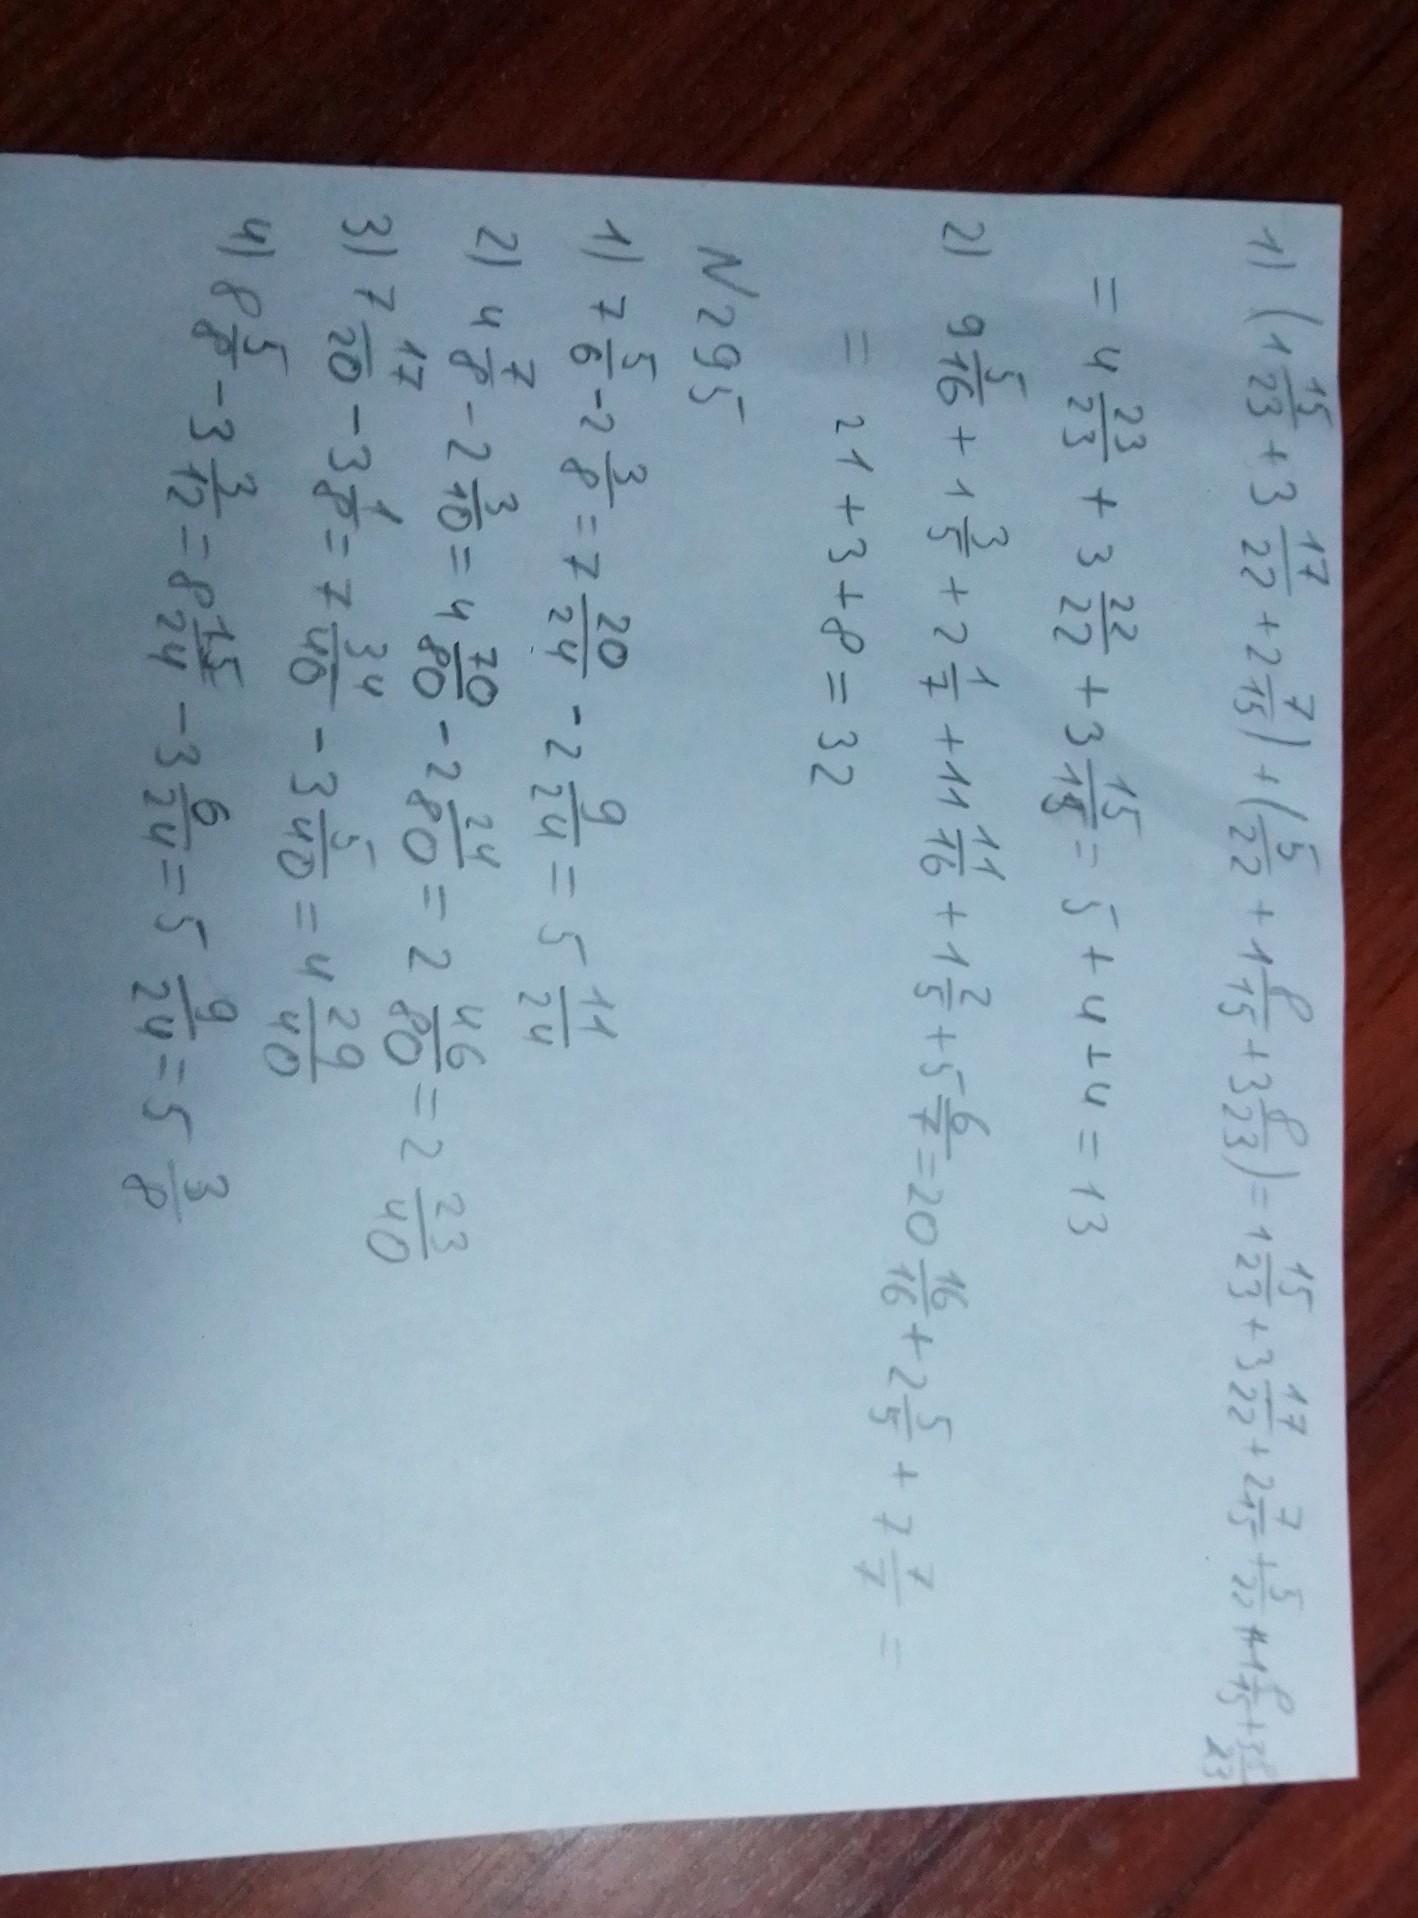 1) (1 15/23 + 3 17/22 + 2 7/15) + (5/22 + 1 8/15 + 3 8/23) = 1 15/23 + 3 17/22 + 2 7/15 + 5/22 + 1 8/15 + 3 8/23
= 4 23/23 + 3 22/22 + 3 15/15 = 5 + 4 + 4 = 13
2) 9 5/16 + 1 3/5 + 2 1/7 + 11 11/16 + 1 2/5 + 5 6/7 = 20 16/16 + 2 5/5 + 7 7/7 =
= 21 + 3 + 8 = 32
N 295
1) 7 5/6 - 2 3/8 = 7 20/24 - 2 9/24 = 5 11/24
2) 4 7/8 - 2 3/10 = 4 70/80 - 2 24/80 = 2 46/80 = 2 23/40
3) 7 17/20 - 3 1/8 = 7 34/40 - 3 5/40 = 4 29/40
4) 8 5/8 - 3 3/12 = 8 15/24 - 3 6/24 = 5 9/24 = 5 3/8